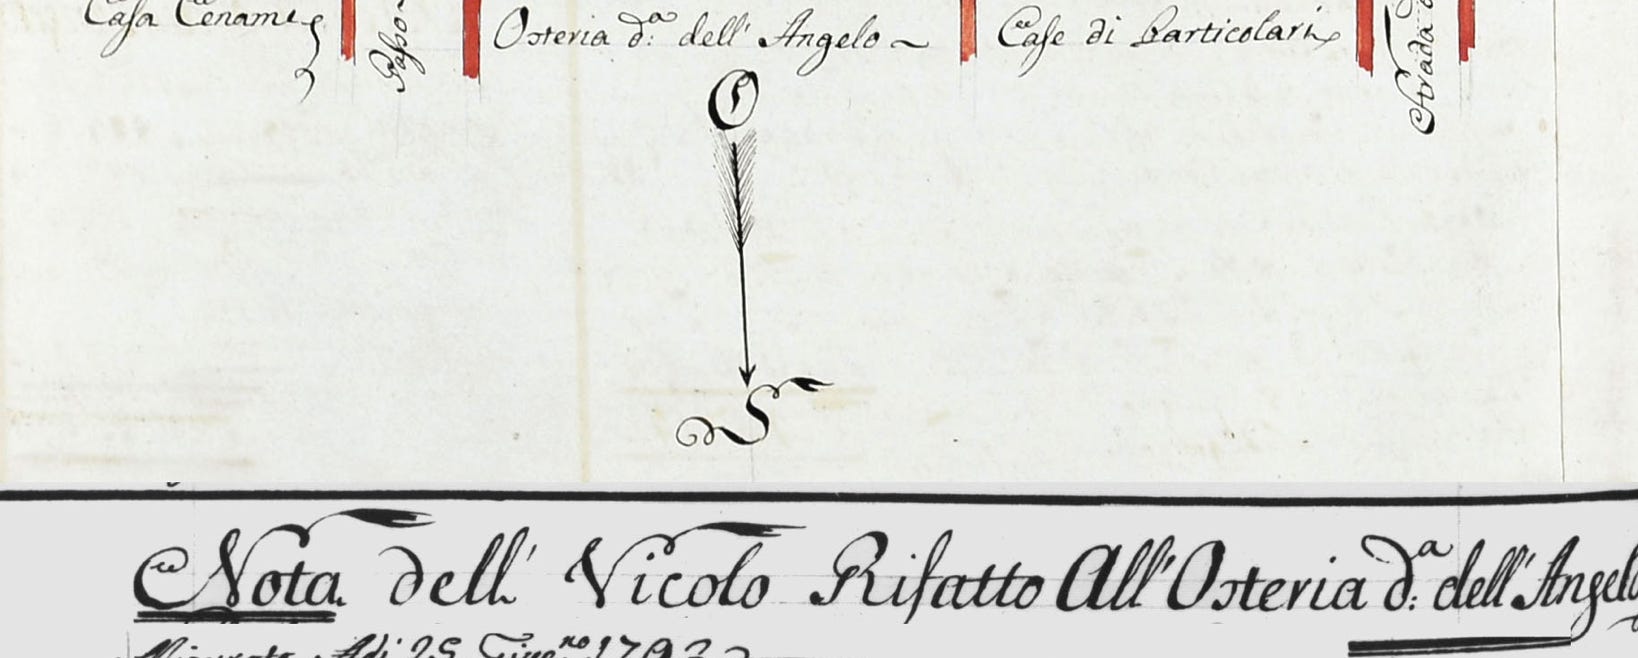 Casa Cenami
Passo
Osteria d.ª dell' Angelo
Case di Particolari
Strada d
O
S
Nota dell' Vicolo Rifatto All' Osteria d.ª dell' Angelo
Misurato Adi 25 Giug.no 1793